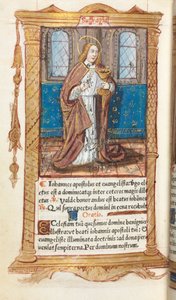 Iohannes apostolus et euāgelista virgo el
ectus est a domino: atq; inter ceteros magis dilec
tus. Valde honorādus est beatus iohānes
Qui supra pectus domini in cena recubuit
Oratio.
Ecclesiam tuā quesumus domine benignus
illustra: ut beati iohannis apostoli tui et
euangeliste illuminata doctrinis: ad dona perue
niat sempiterna. Per dominum nostrum